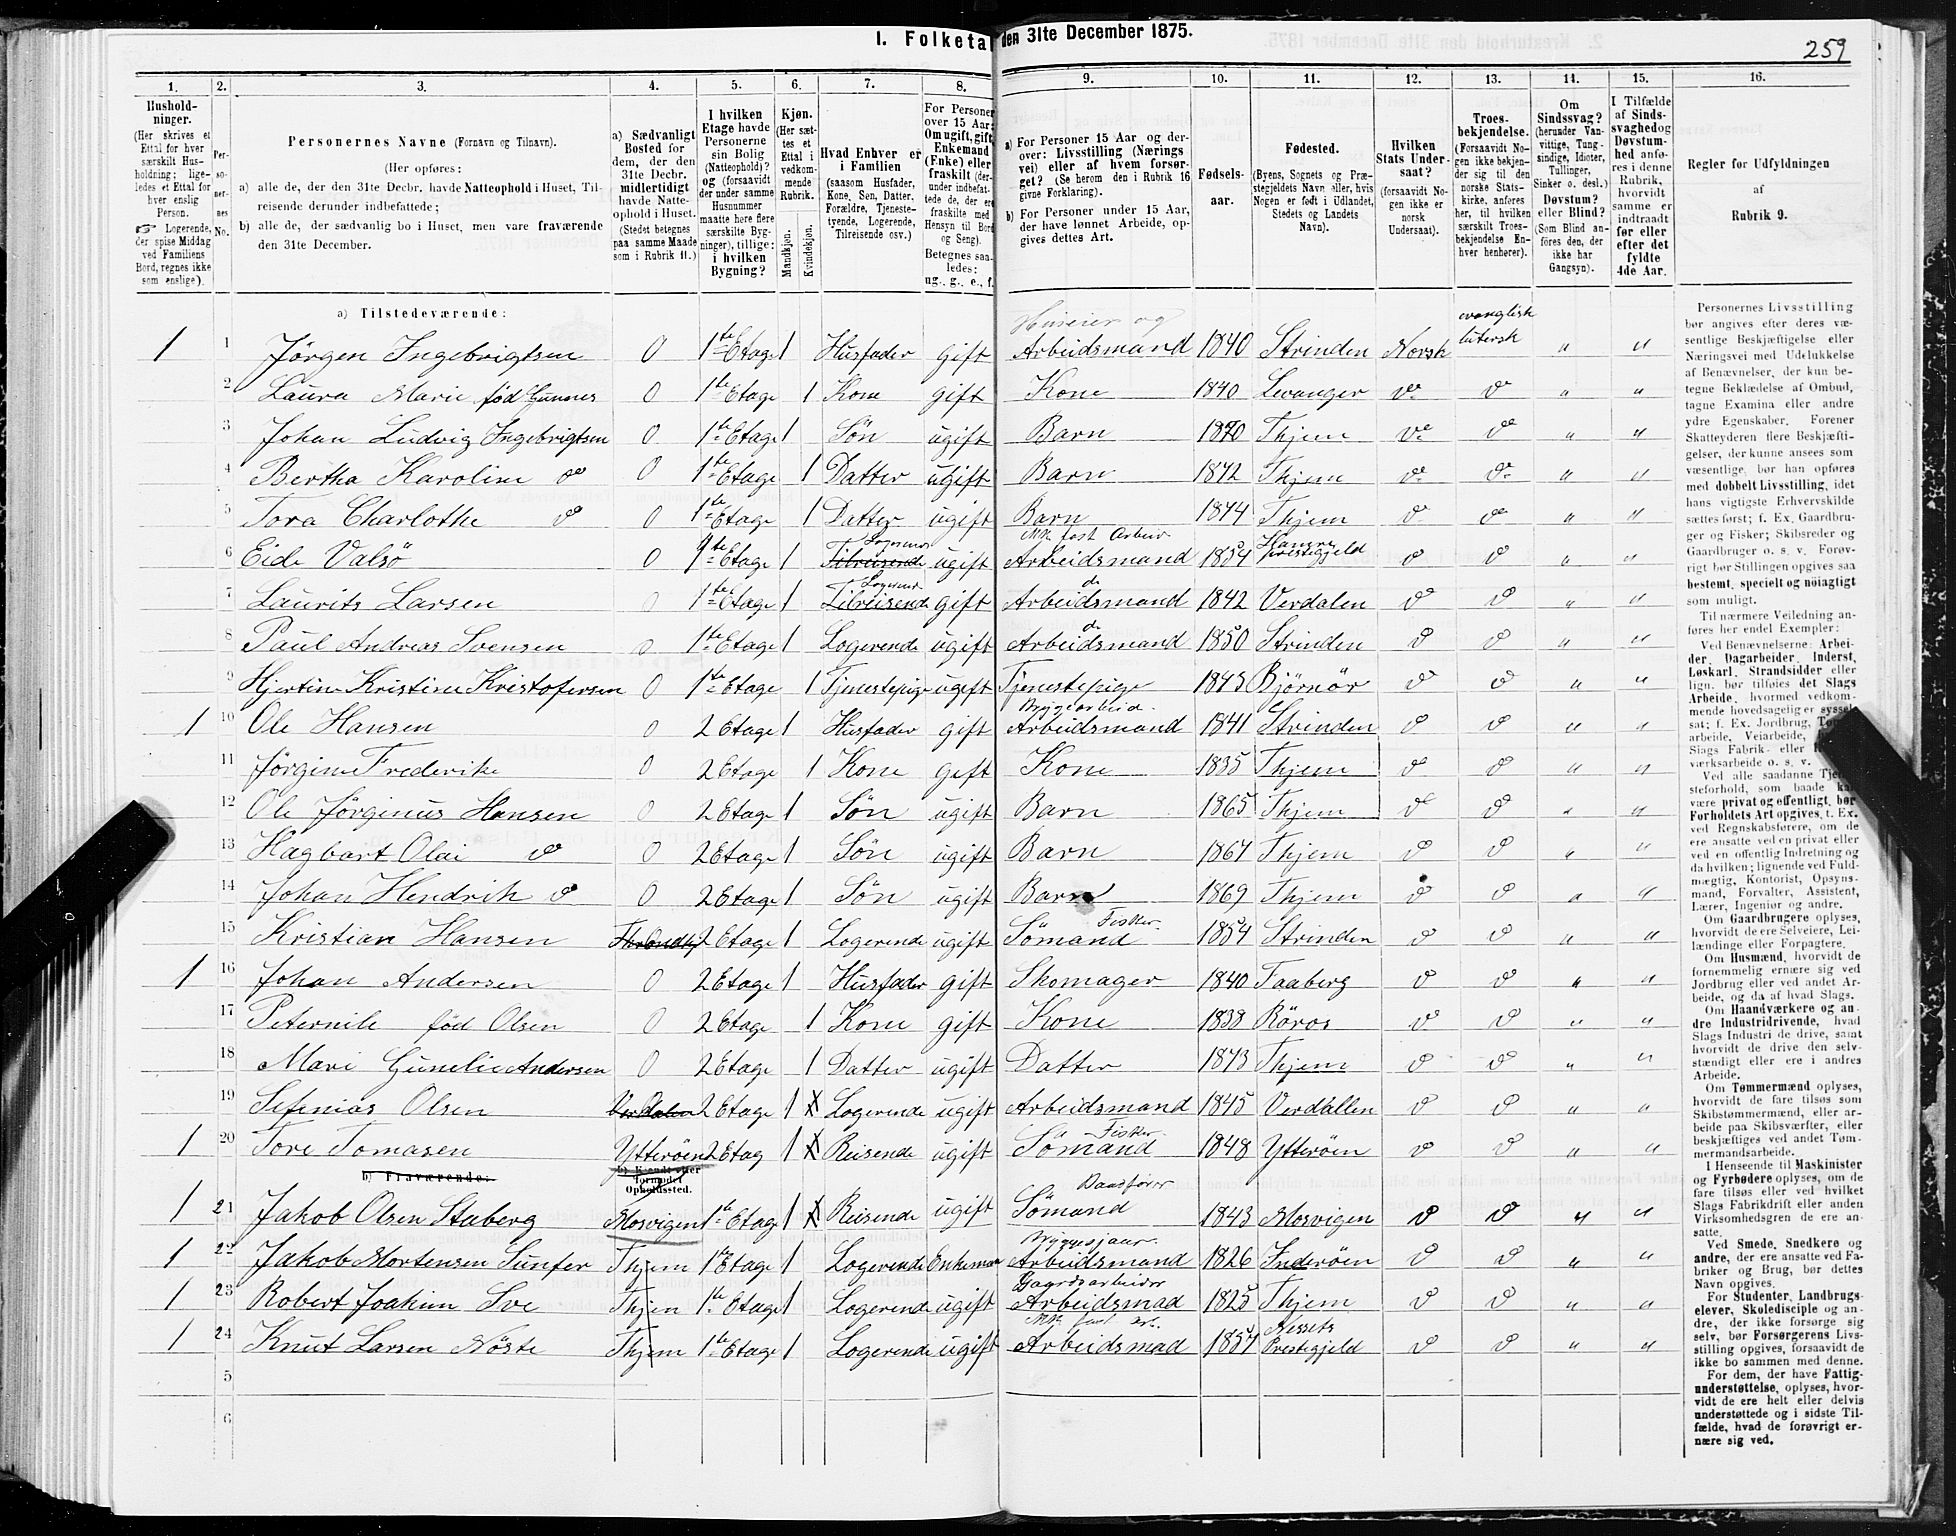 1. Folketal den 31te December 1875.
259
1. 2. 3. 4. 5. 6. 7. 8. 9. 10. 11. 12. 13. 14. 15. 16.
Hushold-
ninger.
(Her skrives et
Ettal for hver
særskilt Hus-
holdning; lige-
ledes et Ettal for
hver enslig
Person.
☞ Logerende,
der spise Middag
ved Familiens
Bord, regnes ikke
som enslige).
Per-
so-
ner-
nes
No.
Personernes Navne (Fornavn og Tilnavn).
(Her opføres:
a) alle de, der den 31te Decbr. havde Natteophold i Huset, Til-
reisende derunder indbefattede;
b) alle de, der sædvanlig bo i Huset, men vare fraværende
den 31te December.
a) Sædvanligt
Bosted for
dem, der den
31te Decbr.
midlertidigt
havde Natte-
ophold i Huset.
(Stedet betegnes
paa samme Maade
som i Rubrik 11.)
I hvilken
Etage havde
Personerne
sin Bolig
(Natteophold)?
og (forsaavidt
der under samme
Husnummer
maatte høre flere
særskilte Byg-
ninger), tillige:
i hvilken
Bygning?
Kjøn.
(Her sæt-
tes et
Ettal i
vedkom-
mende
Rubrik.
Mandkjøn.
Kvindekjøn.
Hvad Enhver er
i Familien
(saasom Husfader,
Kone, Søn, Datter,
Forældre, Tjeneste-
tyende, Logerende,
Tilreisende osv.)
For Personer
over 15 Aar:
Om ugift, gift,
Enkemand
(Enke) eller
fraskilt (der-
under indbefat-
tede de, der ere
fraskilte med
Hensyn til Bord
og Seng).
Betegnes saa-
ledes:
ug., g., e., f.
a) For Personer 15 Aar og der-
over: Livsstilling (Nærings-
vei) eller af hvem forsør-
get? (Se herom den i Rubrik 16
givne Forklaring).
b) For Personer under 15 Aar,
der have lønnet Arbeide, op-
gives dettes Art.
Fødsels-
aar.
Fødested.
(Byens, Sognets og Præ-
stegjeldets Navn eller, hvis
Nogen er født i Udlandet,
Stedets og Landets
Navn).
Hvilken
Stats Under-
saat?
(forsaavidt No-
gen ikke er
norsk
Undersaat).
Troes-
bekjendelse.
(Forsaavidt No-
gen ikke bekjen-
der sig til den
norske Stats-
kirke, anføres
her, til hvilken
særskilt Troes-
bekjendelse En-
hver henhører).
Om
Sindssvag?
(herunder Van-
vittige, Tung-
sindige, Idioter,
Tullinger,
Sinker o. desl.)
Døvstum?
eller Blind?
(Som Blind an-
føres den, der
ikke har
Gangsyn).
I Tilfælde
af Sinds-
svaghed og
Døvstum-
hed anfø-
res i denne
Rubrik,
hvorvidt
samme er
indtraadt
før eller
efter det
fyldte
4de Aar.
Regler for Udfyldningen
af
Rubrik 9.
a) Tilstedeværende:
1 1 Jörgen Ingebrigtsen 0 1te Etage 1 Husfader gift Huseier og Arbeidsmand 1840 Strinden Norsk evanglisk lutersk " "
2 Laura Marie fød Gunnes 0 1te Etage 1 Kone gift Kone 1840 Levanger do do " "
3 Johan Ludvig Ingebrigtsen 0 1te Etage 1 Sön ugift Barn 1870 Thjem do do " "
4 Bertha Karoline do 0 1te Etage 1 Datter ugift Barn 1872 Thjem do do " "
5 Tora Charlothe do 0 1te Etage 1 Datter ugift Barn 1874 Thjem do do " "
6 Eide Valsö 0 1te Etage 1 Tilreisende Logerende ugift Arbeidsmand fast Arbeid 1854 prestigjeld do do " "
7 Laurits Larsen 0 1te Etage 1 Tilreisende Logerende gift Arbeidsmand do 1842 Verdalen do do " "
8 Paul Andreas Svensen 0 1te Etage 1 Logerende ugift Arbeidsmand do 1850 Strinden do do " "
9 Hjertine Kristine Kristofersen 0 1te Etage 1 Tjenestepige ugift Tjenestepige 1843 Bjørnör do do " "
1 10 Ole Hansen 0 2 Etage 1 Husfader gift Byggearbeid. Arbeidsmand 1841 Strinden do do " "
11 Jörgine Frederike 0 2 Etage 1 Kone gift Kone 1835 Thjem do do " "
12 Ole Jörginus Hansen 0 2 Etage 1 Sön ugift Barn 1865 Thjem do do " "
13 Hagbart Olai do 0 2 Etage 1 Sön ugift Barn 1867 Thjem do do " "
14 Johan Hendrik do 0 2 Etage 1 Sön ugift Barn 1869 Thjem do do " "
15 Kristian Hansen 2 Etage 1 Logerende ugift Sömand Fisker. 1854 Strinden do do " "
1 16 Johan Andersen 0 2 Etage 1 Husfader gift Skomager 1840 Faaberg do do " "
17 Peternile fød Olsen 0 2 Etage 1 Kone gift Kone 1838 Röros do do " "
18 Mari Gunelie Andersen 0 2 Etage 1 Datter ugift Datter 1873 Thjem do do " "
19 Sefenias Olsen Verdalen 2 Etage 1 Logerende ugift Arbeidsmand 1845 Verdallen do do " "
1 20 Tore Tomasen Ytteröen 2 Etag 1 Reisende ugift Sömand Fisker 1848 Ytteröen do do " "
b) Fraværende:
b) Kjendt eller
formodet
Opholdssted.
1 21 Jakob Olsen Staberg Mosvigen 1te Etage 1 Reisende ugift Sömand Baadfører 1843 Mosvigen do do " "
1 22 Jakob Mortensen Sunfer Thjem 1te Etage 1 Logerende Enkeman Arbeidsmand 1826 Inderöen do do " "
1 23 Robert Joakim Sve Thjem 1te Etage 1 Logerende ugift Gaardsarbeider Arbeidsmad 1825 Thjem do do " "
1 24 Knut Larsen Nöste Thjem 1te Etage 1 Logerende ugift Arbeidsmad 1857 Nessets Prestigjeld do do " "
5
6
Personernes Livsstilling
bør angives efter deres væ-
sentlige Beskjæftigelse eller
Næringsvei med Udelukkelse
af Benævnelser, der kun be-
tegne Beklædelse af Ombud,
tagne Examina eller andre
ydre Egenskaber. Forener
Skatteyderen flere Beskjæfti-
gelser, der kunne ansees som
væsentlige, bør han opføres
med dobbelt Livsstilling, idet
hans vigtigste Erhvervskilde
sættes først; f. Ex. Gaardbru-
ger og Fisker; Skibsreder og
Gaardbruger o. s. v. Forøv-
rigt bør Stillingen opgives saa
bestemt, specielt og nøiagtigt
som muligt.
Til nærmere Veiledning an-
føres her endel Exempler:
Ved Benævnelserne: Arbei-
der, Dagarbeider, Inderst,
Løskarl, Strandsidder eller
lign. bør tilføies det Slags
Arbeide, hvormed vedkom-
mende hovedsagelig er syssel-
sat; f. Ex. Jordbrug,
arbeide, Veiarbeide,
Slags Fabrik- eller
værksarbeide o. s. v.
Ved alle saadanne Tjene-
steforhold, som baade kan
være privat og offentligt, bør
Forholdets Art opgives, t. Ex.
ved Regnskabsførere, om de
ere ansatte ved en privat eller
ved en offentlig Indretning og
da hvilken; lignende ved Fuld-
mægtig, Kontorist, Opsyns-
mand, Forvalter, Assistent,
Lærer, Ingeniør og andre.
Om Gaardbrugere oplyses,
hvorvidt de ere Selveiere, Lei-
lændinge eller Forpagtere.
Om Husmænd, hvorvidt de
fornemmelig ernære sig ved
Jordbrug eller ved andet Ar-
beide, og da af hvad Slags.
Om Haandværkere og an-
dre Industridrivende, hvad
Slags Industri de drive, samt
hvorvidt de drive den selv-
stændigt eller ere i andres
Arbeide.
Om Tømmermænd oplyses,
hvorvidt de fare tilsøs som
Skibstømmermænd, eller ar-
beide paa Skibsværfter, eller
beskjæftiges ved andet Tøm-
mermandsarbeide.
I Henseende til Maskinister
og Fyrbødere oplyses, om de
fare tilsøs eller ved hvilket
Slags Fabrikdrift eller anden
Virksomhedsgren de ere an-
satte.
Ved Smede, Snedkere og
andre, der ere ansatte ved Fa-
briker og Brug, bør dettes
Navn opgives.
For Studenter, Landbrugs-
elever, Skoledisciple og an-
dre, der ikke forsørge sig
selv, bør Forsørgerens Livs-
stilling opgives, forsaavidt de
ikke bo sammen med denne.
For dem, der have Fattig-
understøttelse, oplyses, hvor-
vidt de ere helt eller delvis
understøttede og i sidste Til-
fælde, hvad de forøvrigt er-
nære sig ved.